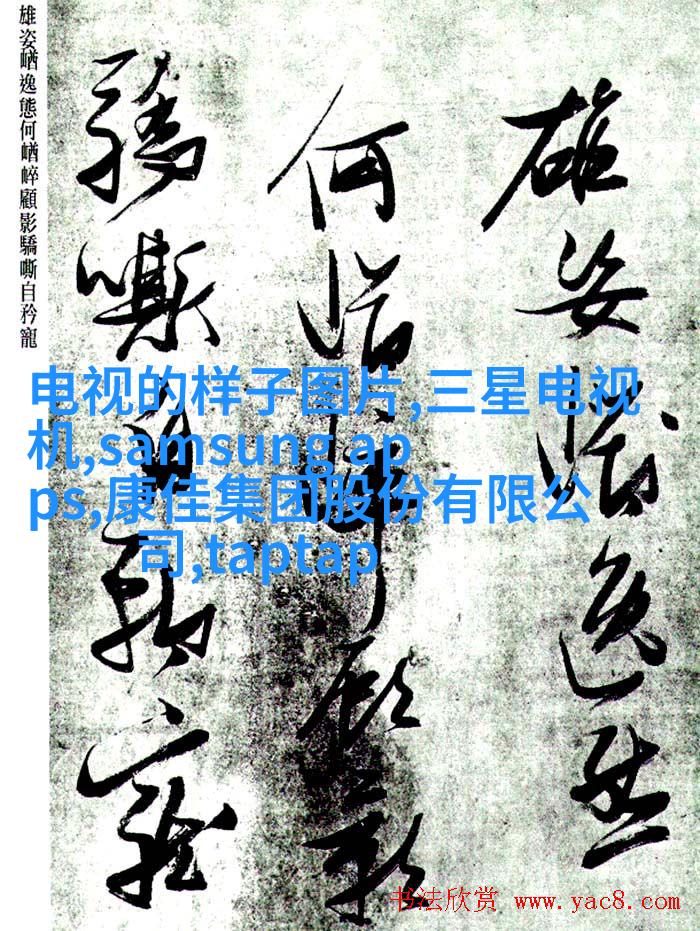 雄姿崷逸態
何崷崪顧影
驕嘶自矜寵
雄姿崷逸態何崷崪顧影驕嘶自矜寵
电视的样子图片,三星电视
机,samsung ap
ps,康佳集团股份有限公
司,taptap
书法欣赏 www.yac8.com